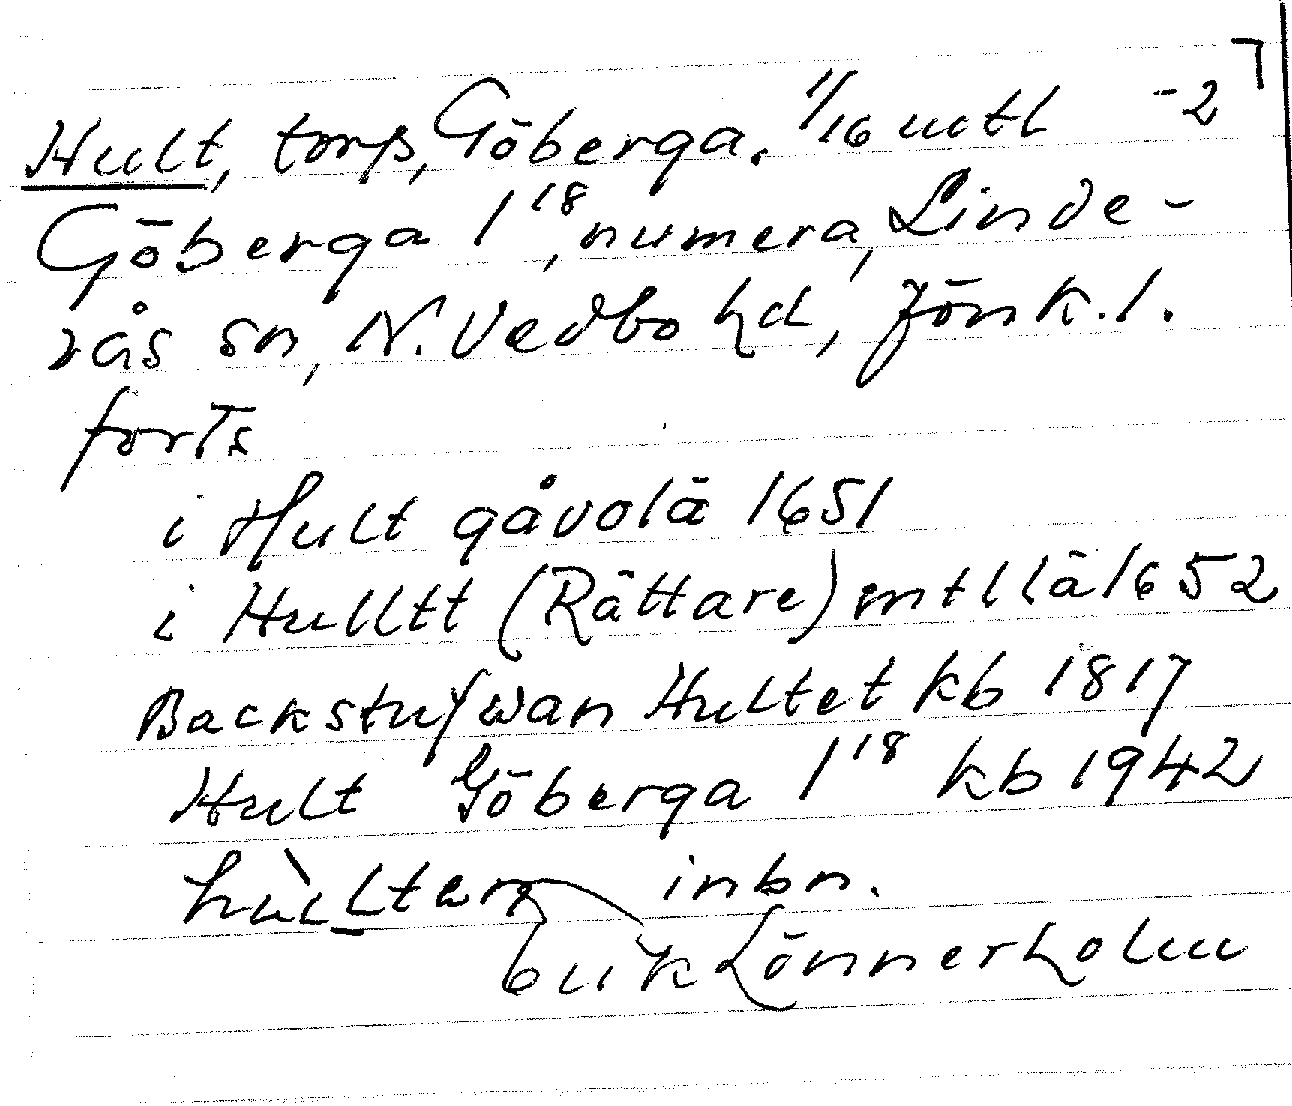 Hult, torp, Göberga. 1/16 mtl -2
Göberga 1¹⁸, numera, Linde-
rås sn, N. Vedbo hd, Jönk. l.
forts
i Hult gåvolä 1651
i Hulltt (Rättare) mtllä 1652
Backstufwan Hultet kb 1817
Hult Göberga 1¹⁸ kb 1942
inbn.
Lönnerholm